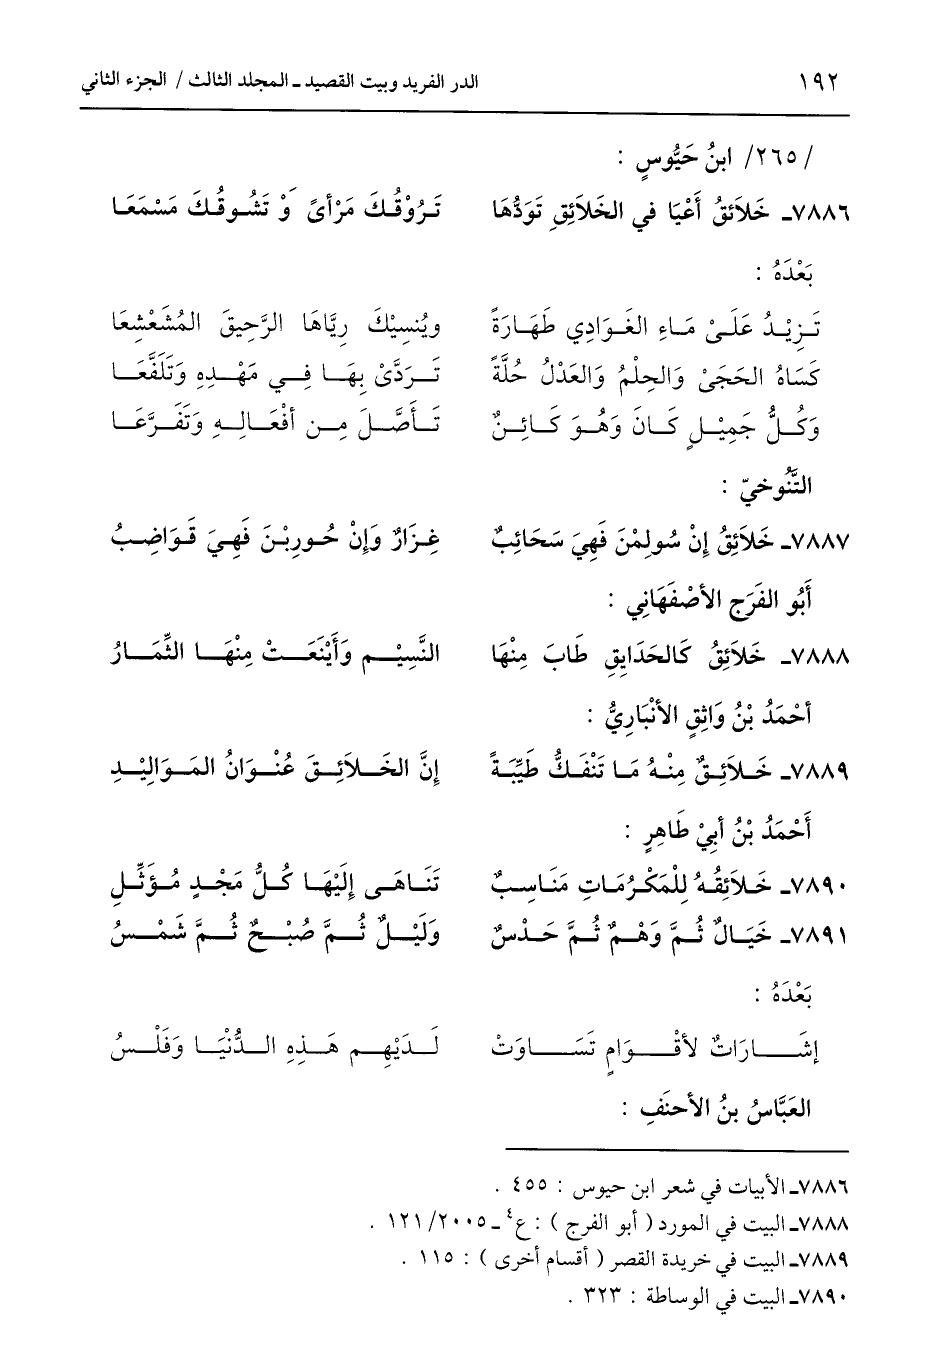 ١٩٢ الدر الفريد وبيت القصيد ـ المجلد الثالث / الجزء الثاني
/٢٦٥/ ابنُ حَيُّوسٍ :
٧٨٨٦ـ خَلاَئقُ أَعْيَا في الخَلاَئِقِ تَوَدُّهَا تَـرُوْقُـكَ مَرْأىً وَ تَشُـوقُـكَ مَسْمَعَـا
بَعْدَهُ :
تَـزِيْـدُ عَلَـىْ مَـاءِ الغَـوَادِي طَهَـارَةً ويُنسِيْكَ ريَّاهَا الرَّحِيقَ المُشَعْشِعَا
كَسَاهُ الحَجَىْ وَالحِلْمُ وَالعَدْلُ حُلَّةً تَـرَدَّىْ بِهَـا فِـي مَهْـدِهِ وَتَلَفَّعَـا
وَكُـلُّ جَمِيْـلٍ كَـانَ وَهُـوَ كَـائِـنٌ تَـأَصَّـلَ مِـن أفْعَـالِـهِ وَتَفَـرَّعَـا
التَّنُوخيّ :
٧٨٨٧ـ خَلاَئِقُ إِنْ سُولِمْنَ فَهِيَ سَحَائِبٌ غِـزَارٌ وَإِنْ حُـورِبْـنَ فَهِيَ قَـوَاضِـبُ
أَبُو الفَرَجِ الأصْفَهَانِي :
٧٨٨٨ـ خَلاَئِقُ كَالحَدَايِقِ طَابَ مِنْهَا النَّسِيْـمِ وَأَيْنَعَـتْ مِنْهَـا الثِّمَـارُ
أحْمَدُ بْنُ وَاثِقٍ الأنْبَارِيُّ :
٧٨٨٩ـ خَـلاَئِـقٌ مِنْـهُ مَـا تَنْفَـكُّ طَيِّبَـةً إنَّ الخَـلاَئِـقَ عُنْـوَانُ المَـوَالِيْـدِ
أَحْمَدُ بْنُ أبِيْ طَاهِرٍ :
٧٨٩٠ـ خَـلاَئِقُـهُ لِلْمَكْـرُمَـاتِ مَنَـاسِـبٌ تَنَـاهَـى إِلَيْهَـا كُـلُّ مَجْـدٍ مُـؤَثَّـلِ
٧٨٩١ـ خَيَـالٌ ثُـمَّ وَهْـمٌ ثُـمَّ حَـدْسٌ وَلَيْـلٌ ثُـمَّ صُبْـحٌ ثُـمَّ شَمْـسُ
بَعْدَهُ :
إشَـارَاتٌ لأقْـوَامٍ تَسَـاوَتْ لَـدَيْهِـم هَـذِهِ الـدُّنْيَـا وَفَلْـسُ
العَبَّاسُ بنُ الأحنَفِ :
٧٨٨٦ـ الأبيات في شعر ابن حيوس : ٤٥٥ .
٧٨٨٨ـ البيت في المورد ( أبو الفرج ) : ع٤ ـ ٢٠٠٥/ ١٢١ .
٧٨٨٩ـ البيت في خريدة القصر ( أقسام أخرى ) : ١١٥ .
٧٨٩٠ـ البيت في الوساطة : ٣٢٣ .